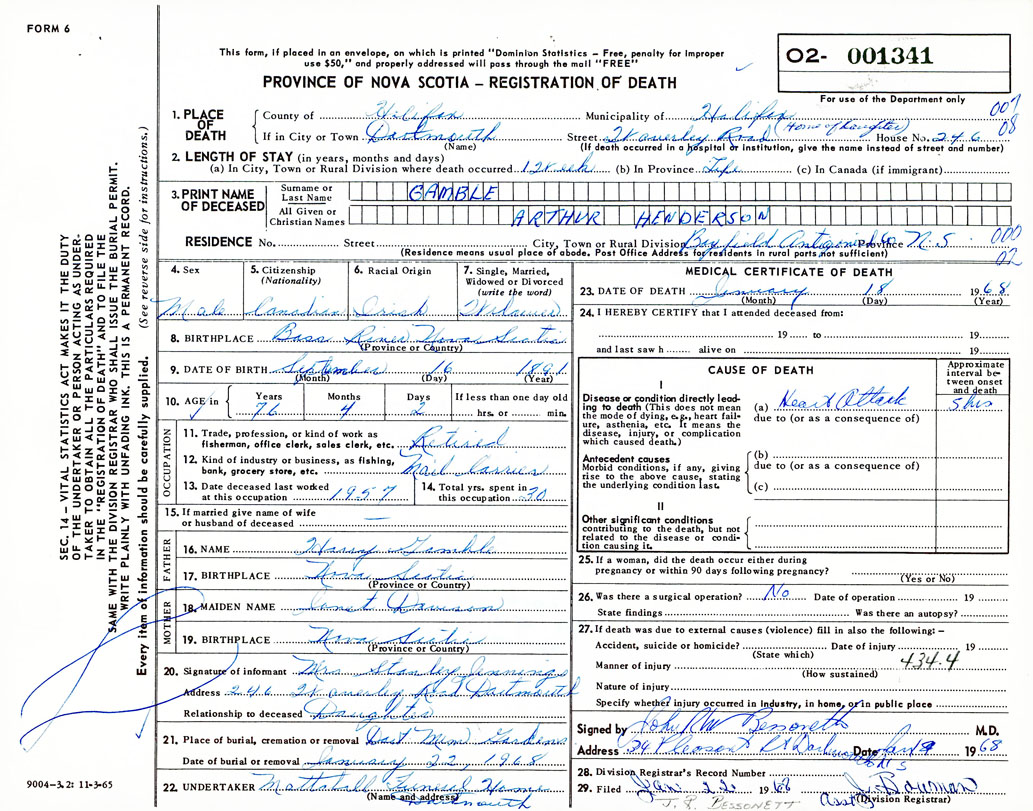 FORM 6
This form, if placed in an envelope, on which is printed "Dominion Statistics – Free, penalty for improper
use $50," and properly addressed will pass through the mail "FREE"
O2- 001341
PROVINCE OF NOVA SCOTIA – REGISTRATION OF DEATH
For use of the Department only
1. PLACE OF DEATH
County of Halifax Municipality of Halifax 007
If in City or Town Dartmouth Street Waverley Road (Home of daughter) House No. 246 08
(Name) (If death occurred in a hospital or institution, give the name instead of street and number)
2. LENGTH OF STAY (in years, months and days)
(a) In City, Town or Rural Division where death occurred 1 Week (b) In Province Life (c) In Canada (if immigrant)
3. PRINT NAME OF DECEASED
Surname or Last Name GAMBLE
All Given or Christian Names ARTHUR HENDERSON
RESIDENCE No. Street City, Town or Rural Division Bayfield Antigonish Co Province N.S. 000
(Residence means usual place of abode. Post Office Address for residents in rural parts not sufficient) 02
4. Sex Male
5. Citizenship (Nationality) Canadian
6. Racial Origin Irish
7. Single, Married, Widowed or Divorced (write the word) Widower
8. BIRTHPLACE Bass River Nova Scotia
(Province or Country)
9. DATE OF BIRTH September 16 1891
(Month) (Day) (Year)
10. AGE in Years 76 Months 4 Days 2 If less than one day old hrs. or min.
OCCUPATION
11. Trade, profession, or kind of work as fisherman, office clerk, sales clerk, etc. Retired
12. Kind of industry or business, as fishing, bank, grocery store, etc. Mail Carrier
13. Date deceased last worked at this occupation 1957
14. Total yrs. spent in this occupation 30
15. If married give name of wife or husband of deceased —
FATHER
16. NAME Harry Gamble
17. BIRTHPLACE Nova Scotia
(Province or Country)
MOTHER
18. MAIDEN NAME Janet Dawson
19. BIRTHPLACE Nova Scotia
(Province or Country)
20. Signature of informant Mrs Stanley Jennings
Address 246 Waverley Road Dartmouth
Relationship to deceased Daughter
21. Place of burial, cremation or removal Dart Mem Gardens
Date of burial or removal January 22, 1968
22. UNDERTAKER Mattatall Funeral Home
(Name and address) Dartmouth
MEDICAL CERTIFICATE OF DEATH
23. DATE OF DEATH January 18 1968
(Month) (Day) (Year)
24. I HEREBY CERTIFY that I attended deceased from:
19 to 19
and last saw h alive on 19
CAUSE OF DEATH
Approximate interval between onset and death
I
Disease or condition directly leading to death (This does not mean the mode of dying, e.g., heart failure, asthenia, etc. It means the disease, injury, or complication which caused death.)
(a) Heart Attack 5 hrs
due to (or as a consequence of)
Antecedent causes
Morbid conditions, if any, giving rise to the above cause, stating the underlying condition last.
(b)
due to (or as a consequence of)
(c)
II
Other significant conditions
contributing to the death, but not related to the disease or condition causing it.
25. If a woman, did the death occur either during
pregnancy or within 90 days following pregnancy?
(Yes or No)
26. Was there a surgical operation? No Date of operation 19
State findings Was there an autopsy?
27. If death was due to external causes (violence) fill in also the following: –
Accident, suicide or homicide? Date of injury 19
(State which)
Manner of injury 434.4
(How sustained)
Nature of injury
Specify whether injury occurred in industry, in home, or in public place
Signed by John R M Bessonett M.D.
Address 24 Pleasant St Dartmouth NS Date Jan 19 1968
28. Division Registrar's Record Number
29. Filed Jan 22 1968 J. Bowman
Asst (Division Registrar)
J. R. BESSONETT
SEC. 14 – VITAL STATISTICS ACT MAKES IT THE DUTY
OF THE UNDERTAKER OR PERSON ACTING AS UNDER-
TAKER TO OBTAIN ALL THE PARTICULARS REQUIRED
IN THE "REGISTRATION OF DEATH" AND TO FILE THE
SAME WITH THE DIVISION REGISTRAR WHO SHALL ISSUE THE BURIAL PERMIT.
WRITE PLAINLY WITH UNFADING INK. THIS IS A PERMANENT RECORD.
Every item of information should be carefully supplied. (See reverse side for instructions.)
9004-3.2: 11-3-65